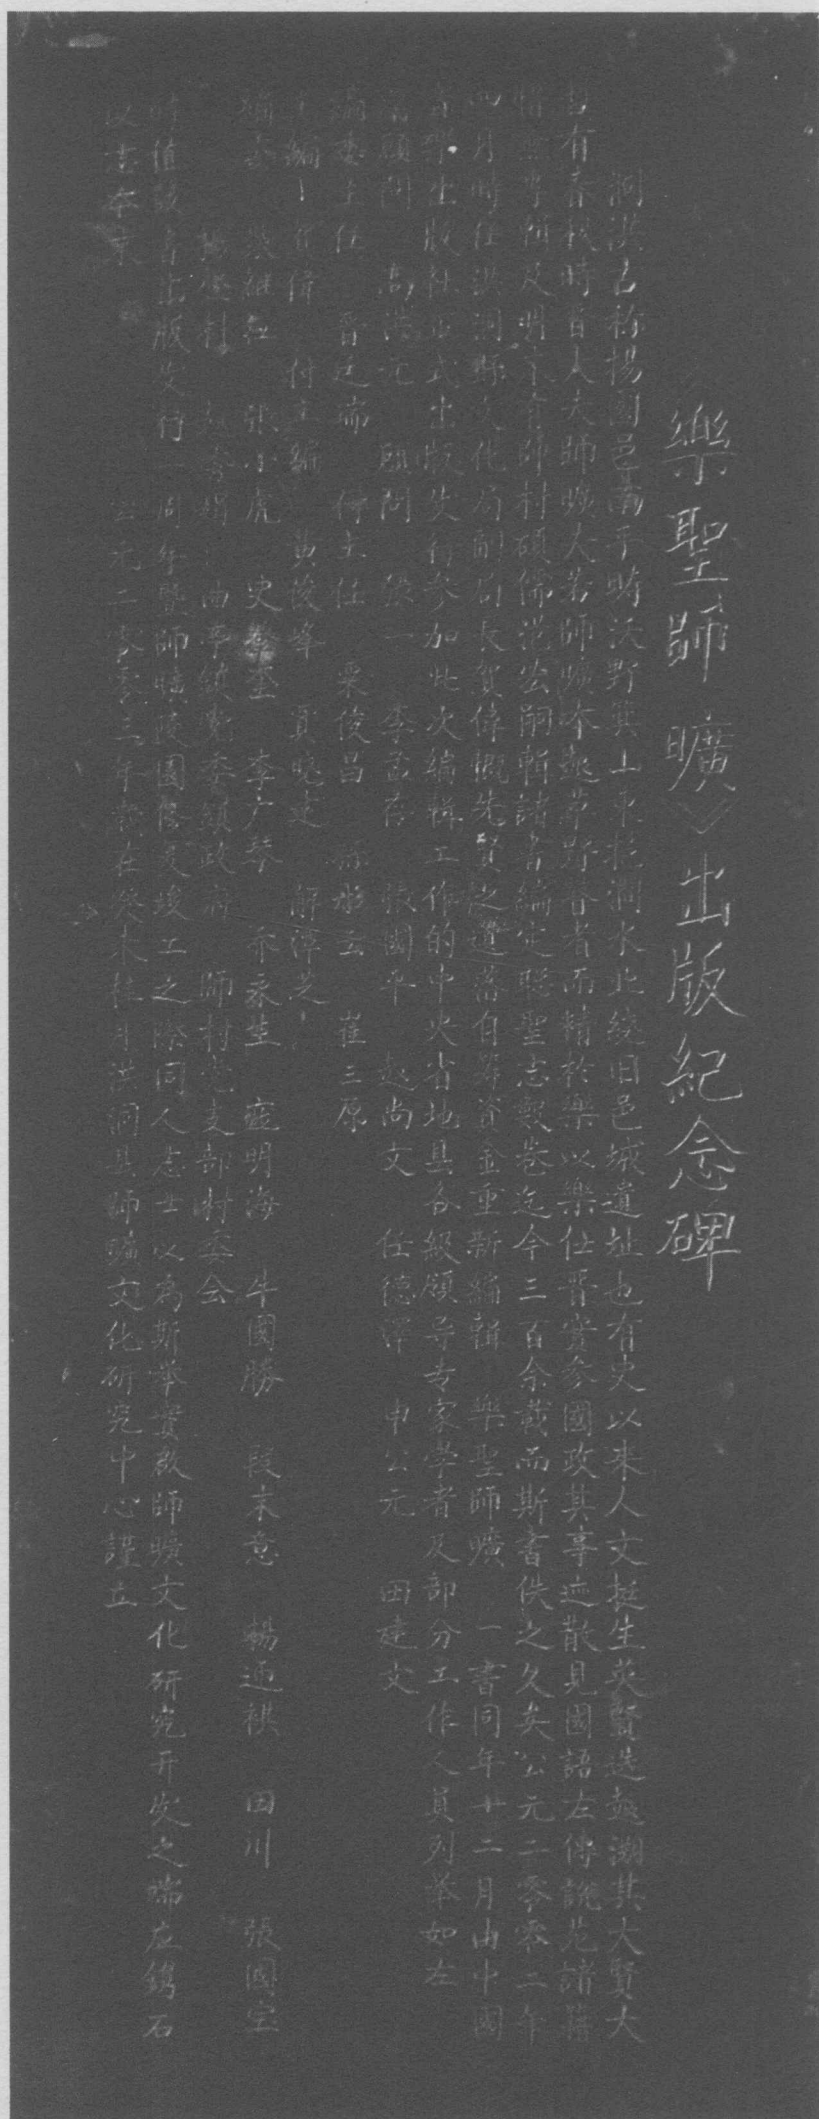 樂聖師曠》出版紀念碑
洞洪古称揚國邑南平畴沃野箕山東挹澗水北繞旧邑城遺址也有史以来人文挺生英賢迭起溯其大賢大
哲有春秋時晋人大師曠大若師曠本起草野瞽者而精於樂以樂仕晋實参國政其事迹散見國語左傳説苑諸籍
惜無專 及明末有師村碩儒范宏嗣輯諸書編定聡聖志數卷迄今三百余載而斯書佚之久矣公元二零零二年
四月時任洪洞縣文化局副局長賀偉慨先賢之遺落自籌資金重新編輯 樂聖師曠 一書同年十二月由中國
音樂出版社正式出版发行参加此次编輯工作的中央省地县各級領导专家学者及部分工作人員列举如左
顧問 高洪元 顧問 張一 李孟存 張國平 赵尚文 任德澤 申公元 田建文
編委主任 晋廷瑞 付主任 栗俊昌 孫彤云 崔三原
主編 賀偉 付主编 黄俊峰 夏曉建 解潭芝
编委 張继红 張小虎 史 李广琴 乔永生 庞明海 牛國勝 段末意 暢迎祺 田川 張國宝
曲亭镇党委镇政府 師村党支部村委会
時值該書出版发行一周年暨師曠陵園修复竣工之際同人志士以為斯举實啟師曠文化研究开发之端应鐫石
以志本末 公元二零零三年歲在癸未桂月洪洞县師曠文化研究中心謹立